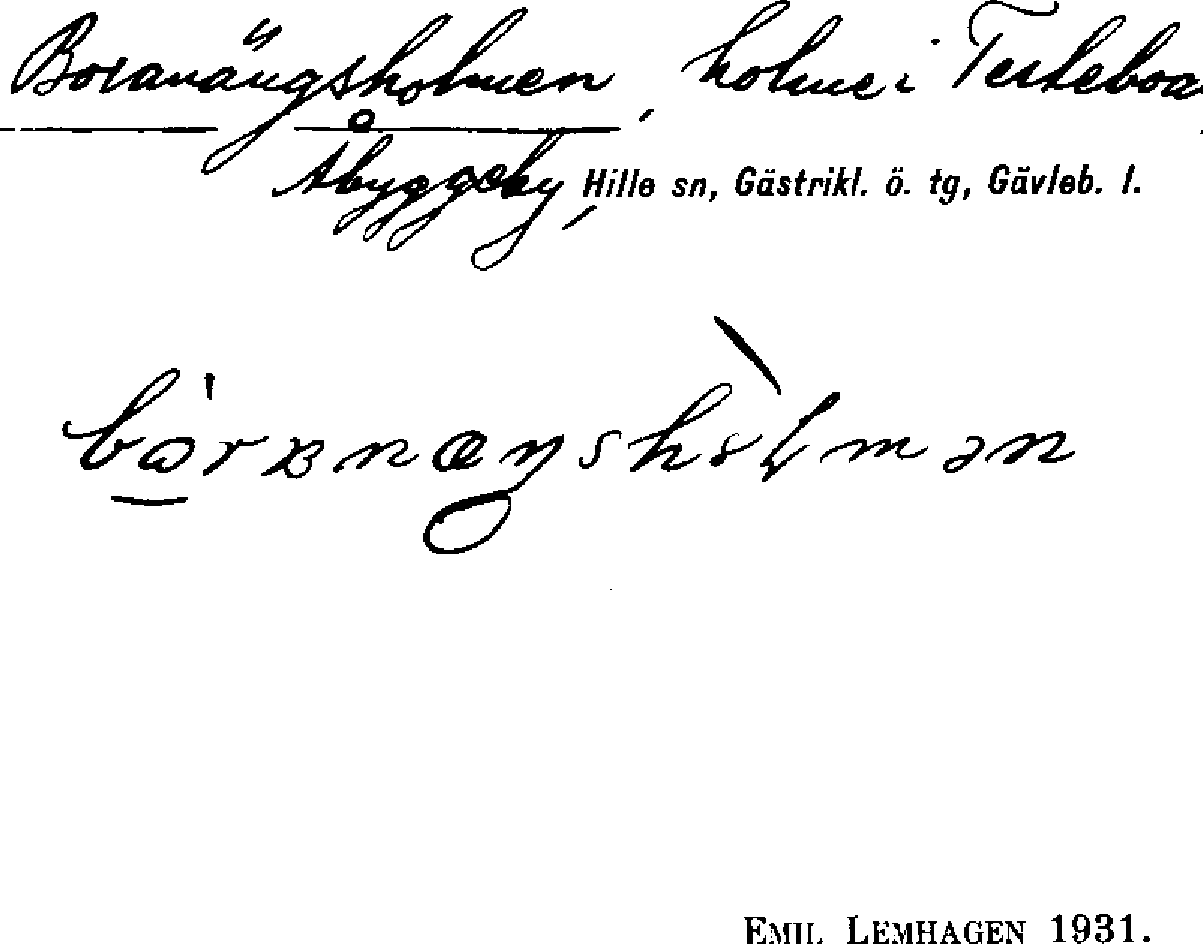 Boranängsholmen, holme i Testeboå
Åbyggeby, Hille sn, Gästrikl. ö. tg, Gävleb. l.
EMIL LEMHAGEN 1931.